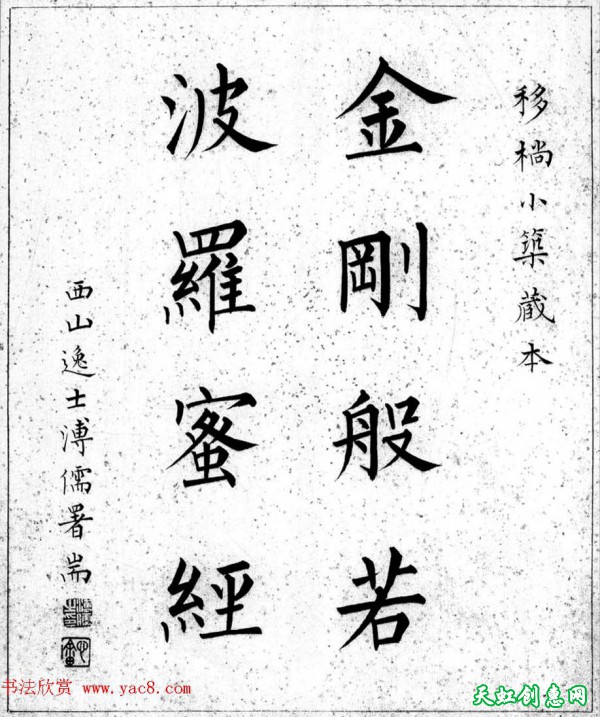 移檰小築藏本
金剛般若
波羅蜜經
西山逸士溥儒署耑
书法欣赏 www.yac8.com
天虹创意网